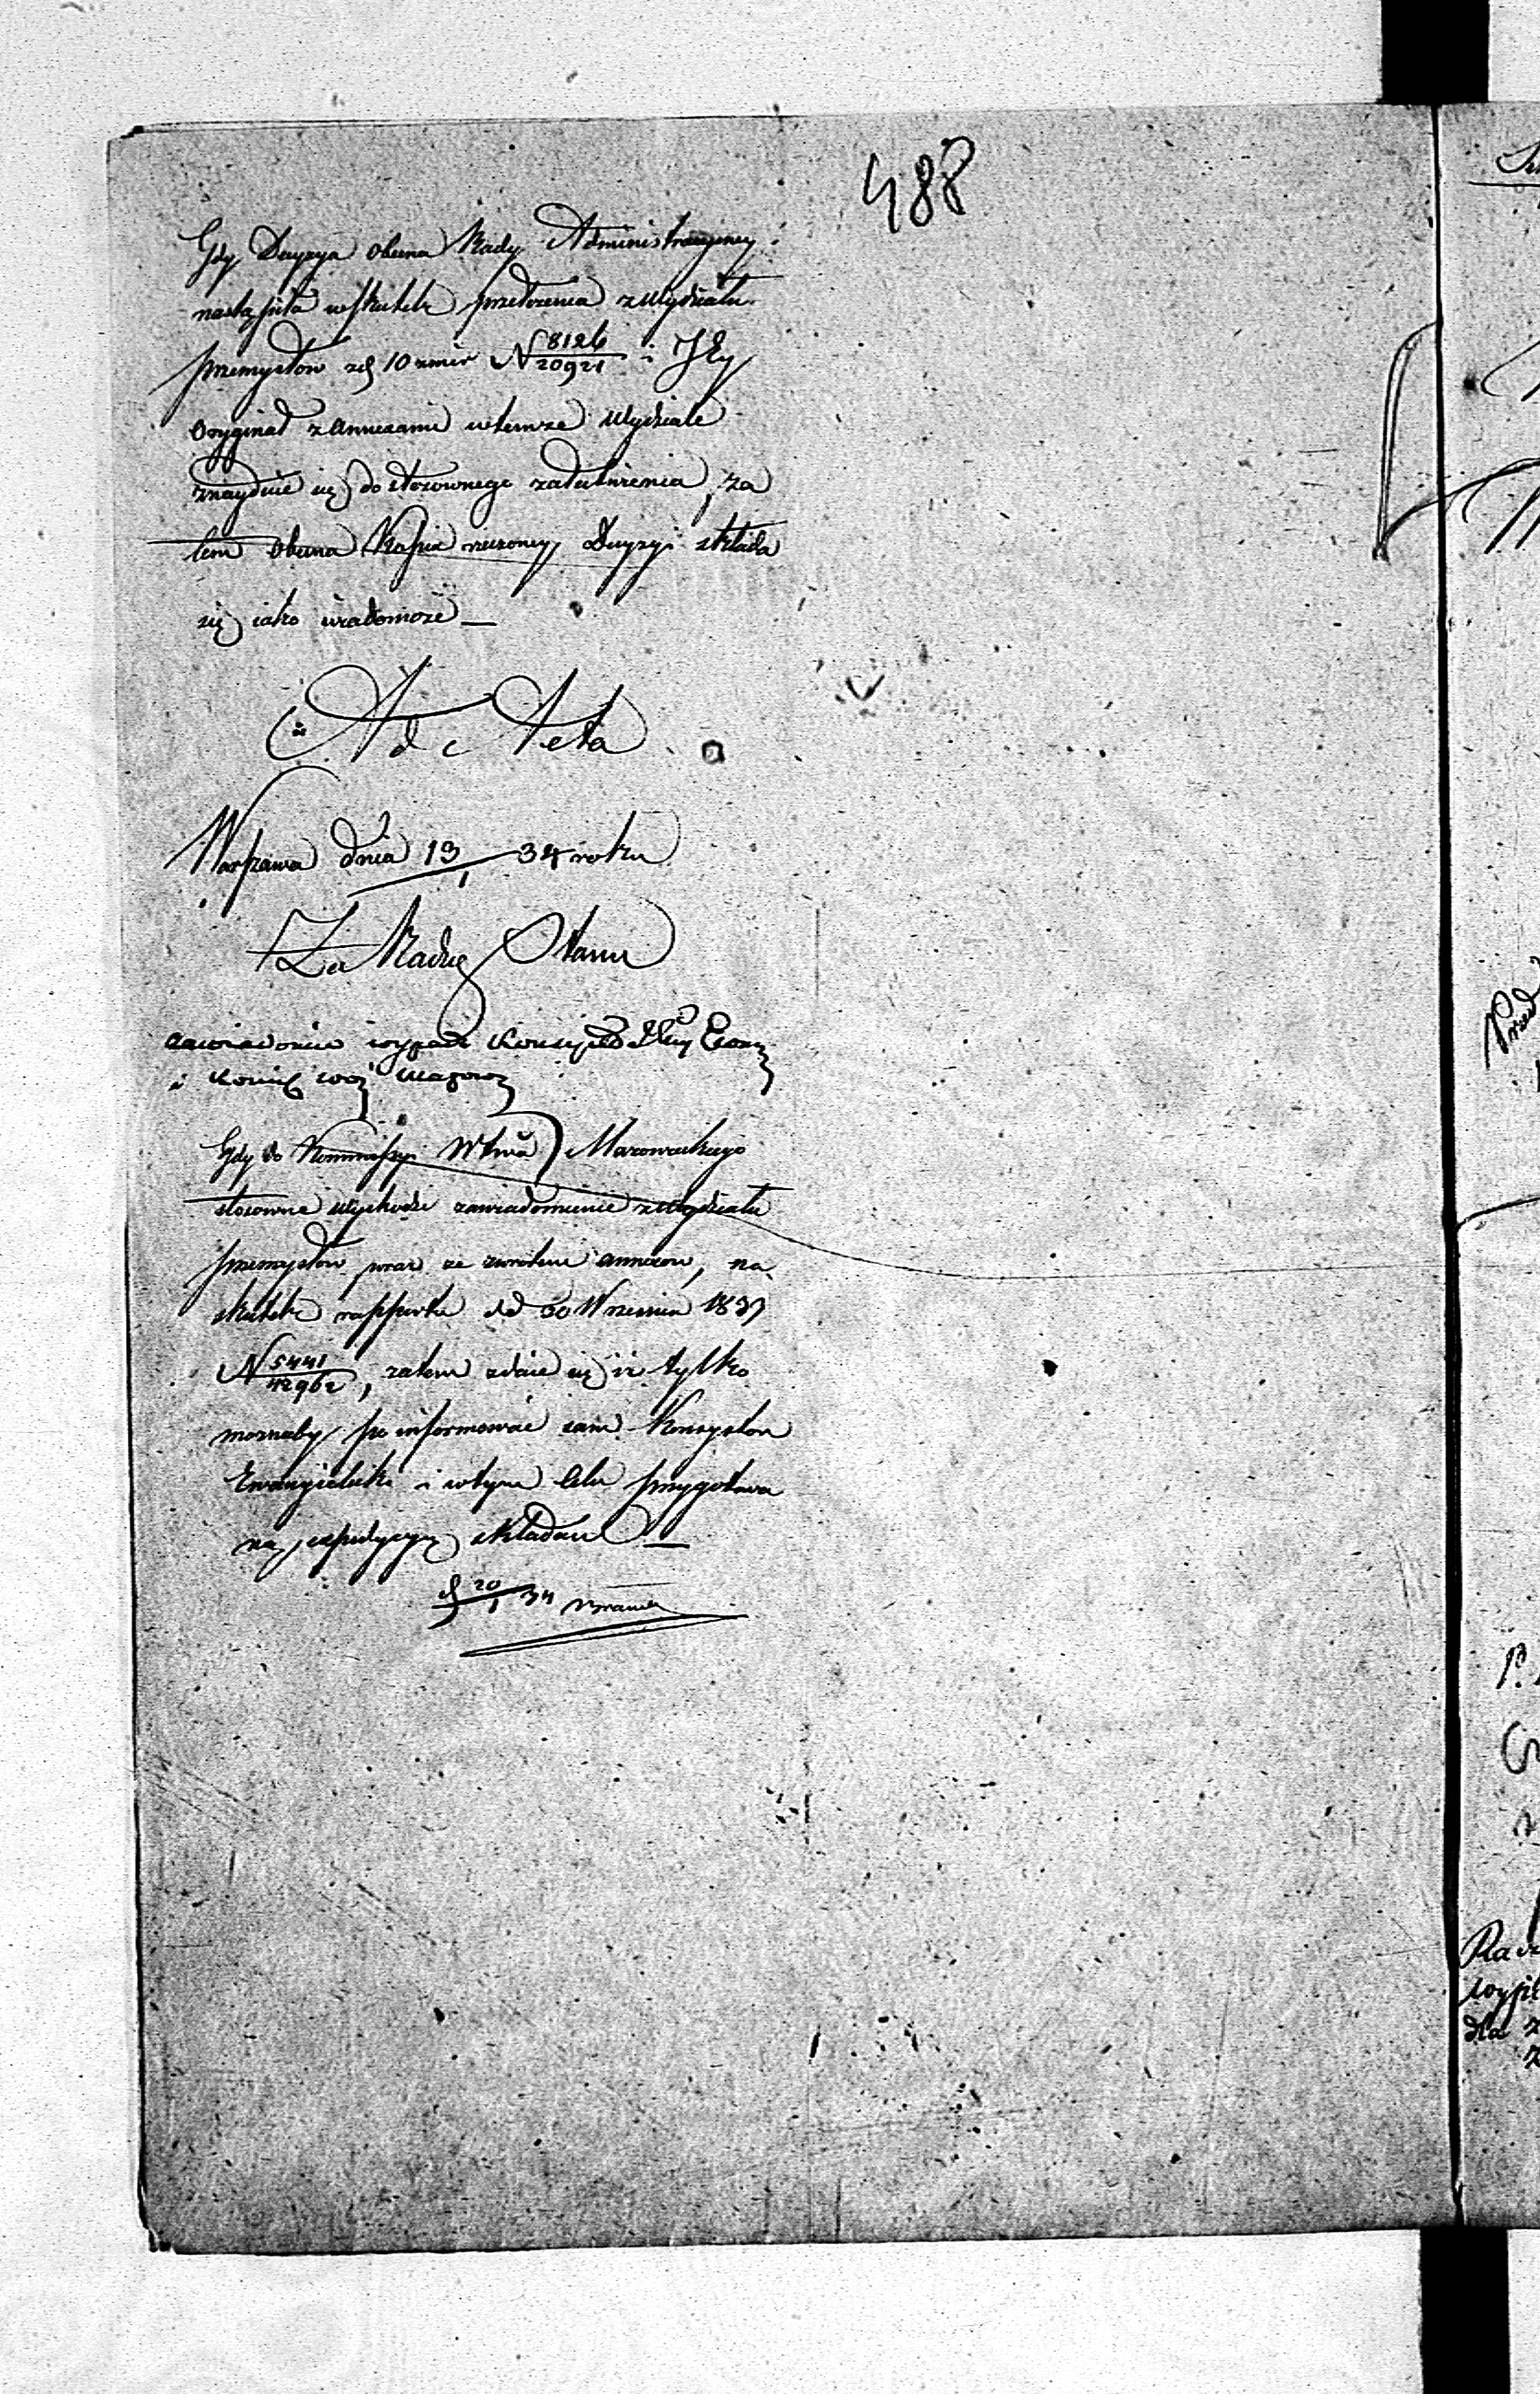 488
Gdy Decyzya obecna Rady Administracyiney
nastąpiła wskutek przełożenia z Wydziału
przemysłów z d 10 zmir N 8126/20921 i Jey
Oryginał z Annexami w temże Wydziale
znayduie się do stosownego załatwienia, za
tem obecna Kopia rzeczoney Decyzyi składa
się iako wiadomość —
Ad Acta
Warszawa dnia 19/1 34 roku
Za Radcę Stanu
zawiadomić wypada Konsyst Ewan
i Komis woj Mazow
Gdy do Kommissyi Wtwa Mazowieckiego
stosowne wychodzi zawiadomienie z Wydziału
przemysłów wraz ze zwrotem annexów, na
skutek rapportu d d 30 Września 1833
N 5441/42962, zatem zdaie się iż tylko
możnaby poinformować sam Konsystorz
Ewangielicki i w tym Celu przygotowa
ną expedycyą składam —
d 20/1 34